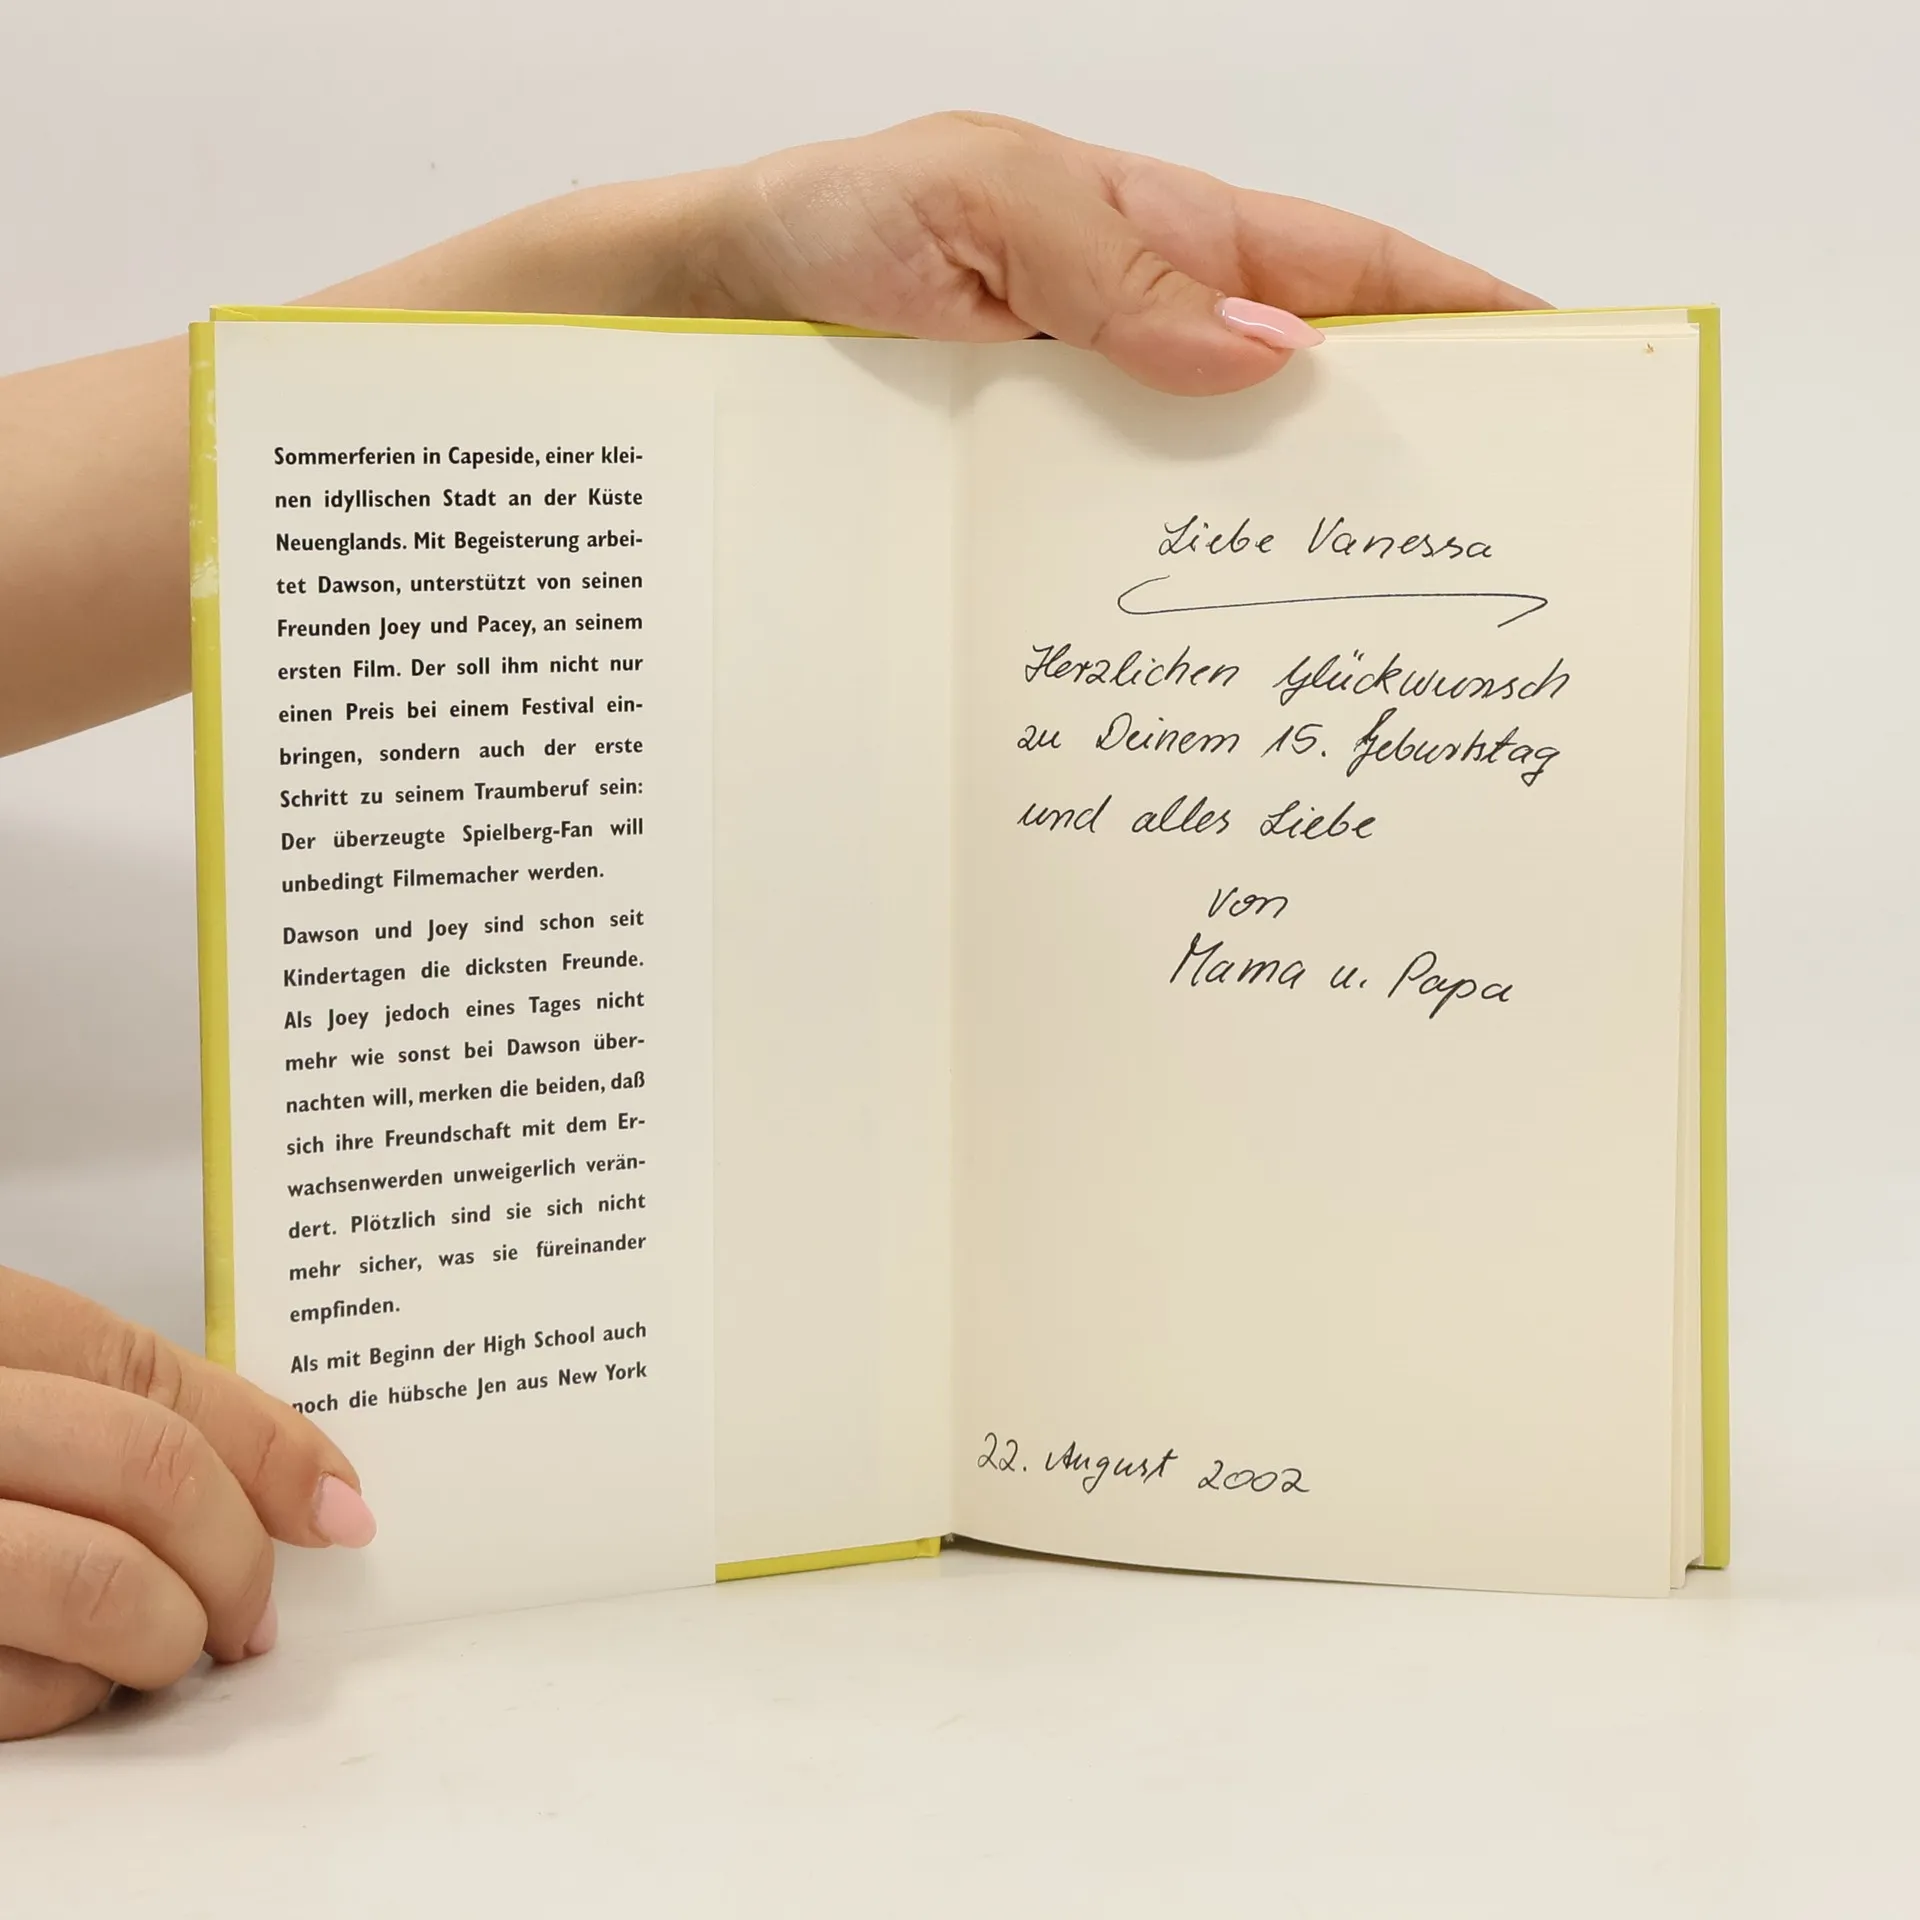 Sommerferien in Capeside, einer klei-
nen idyllischen Stadt an der Küste
Neuenglands. Mit Begeisterung arbei-
tet Dawson, unterstützt von seinen
Freunden Joey und Pacey, an seinem
ersten Film. Der soll ihm nicht nur
einen Preis bei einem Festival ein-
bringen, sondern auch der erste
Schritt zu seinem Traumberuf sein:
Der überzeugte Spielberg-Fan will
unbedingt Filmemacher werden.
Dawson und Joey sind schon seit
Kindertagen die dicksten Freunde.
Als Joey jedoch eines Tages nicht
mehr wie sonst bei Dawson über-
nachten will, merken die beiden, daß
sich ihre Freundschaft mit dem Er-
wachsenwerden unweigerlich verän-
dert. Plötzlich sind sie sich nicht
mehr sicher, was sie füreinander
empfinden.
Als mit Beginn der High School auch
noch die hübsche Jen aus New York
Liebe Vanessa
Herzlichen Glückwunsch
zu Deinem 15. Geburtstag
und alles Liebe
von
Mama u. Papa
22. August 2002